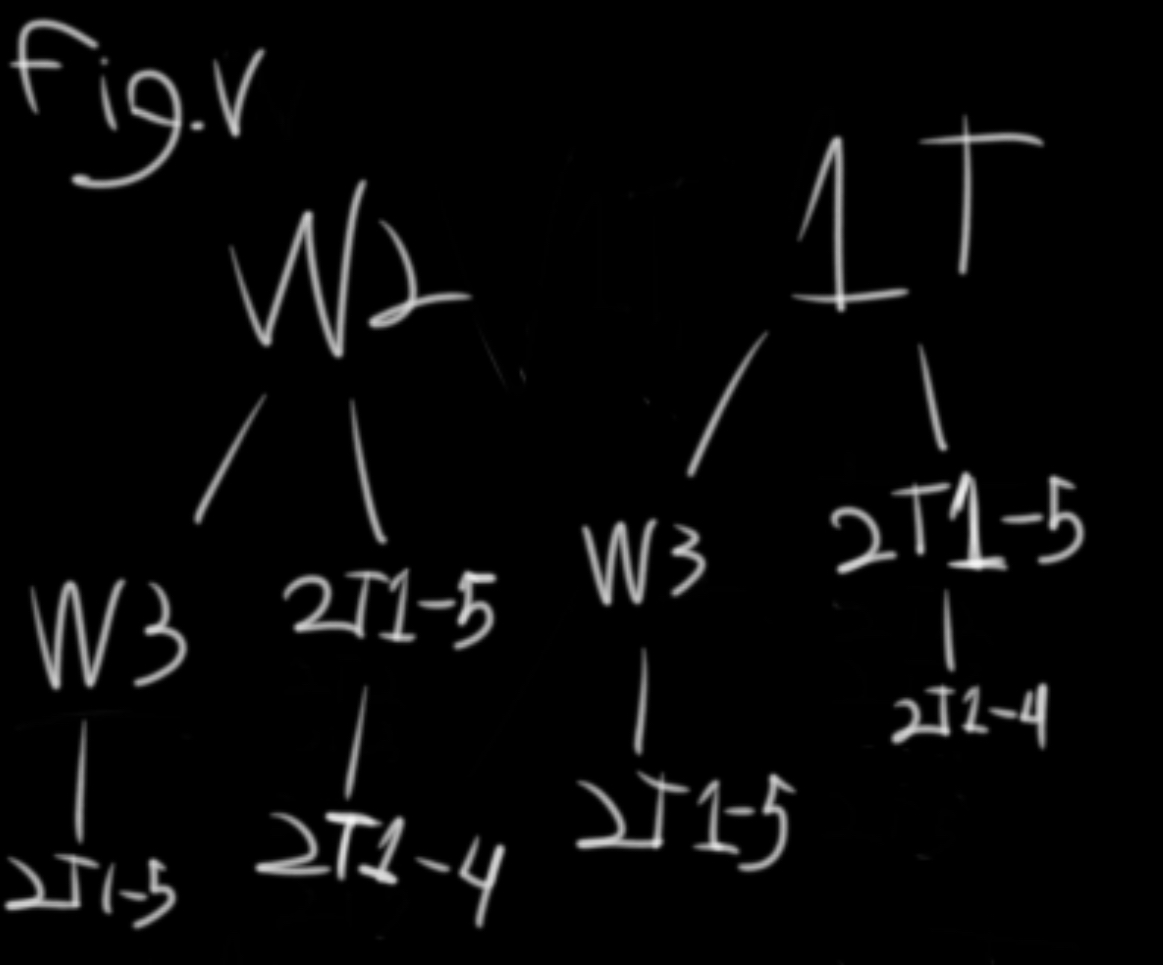 Fig.V
W2
1T
W3
2T1-5
W3
2T1-5
2T1-5
2T1-4
2T1-5
2T1-4